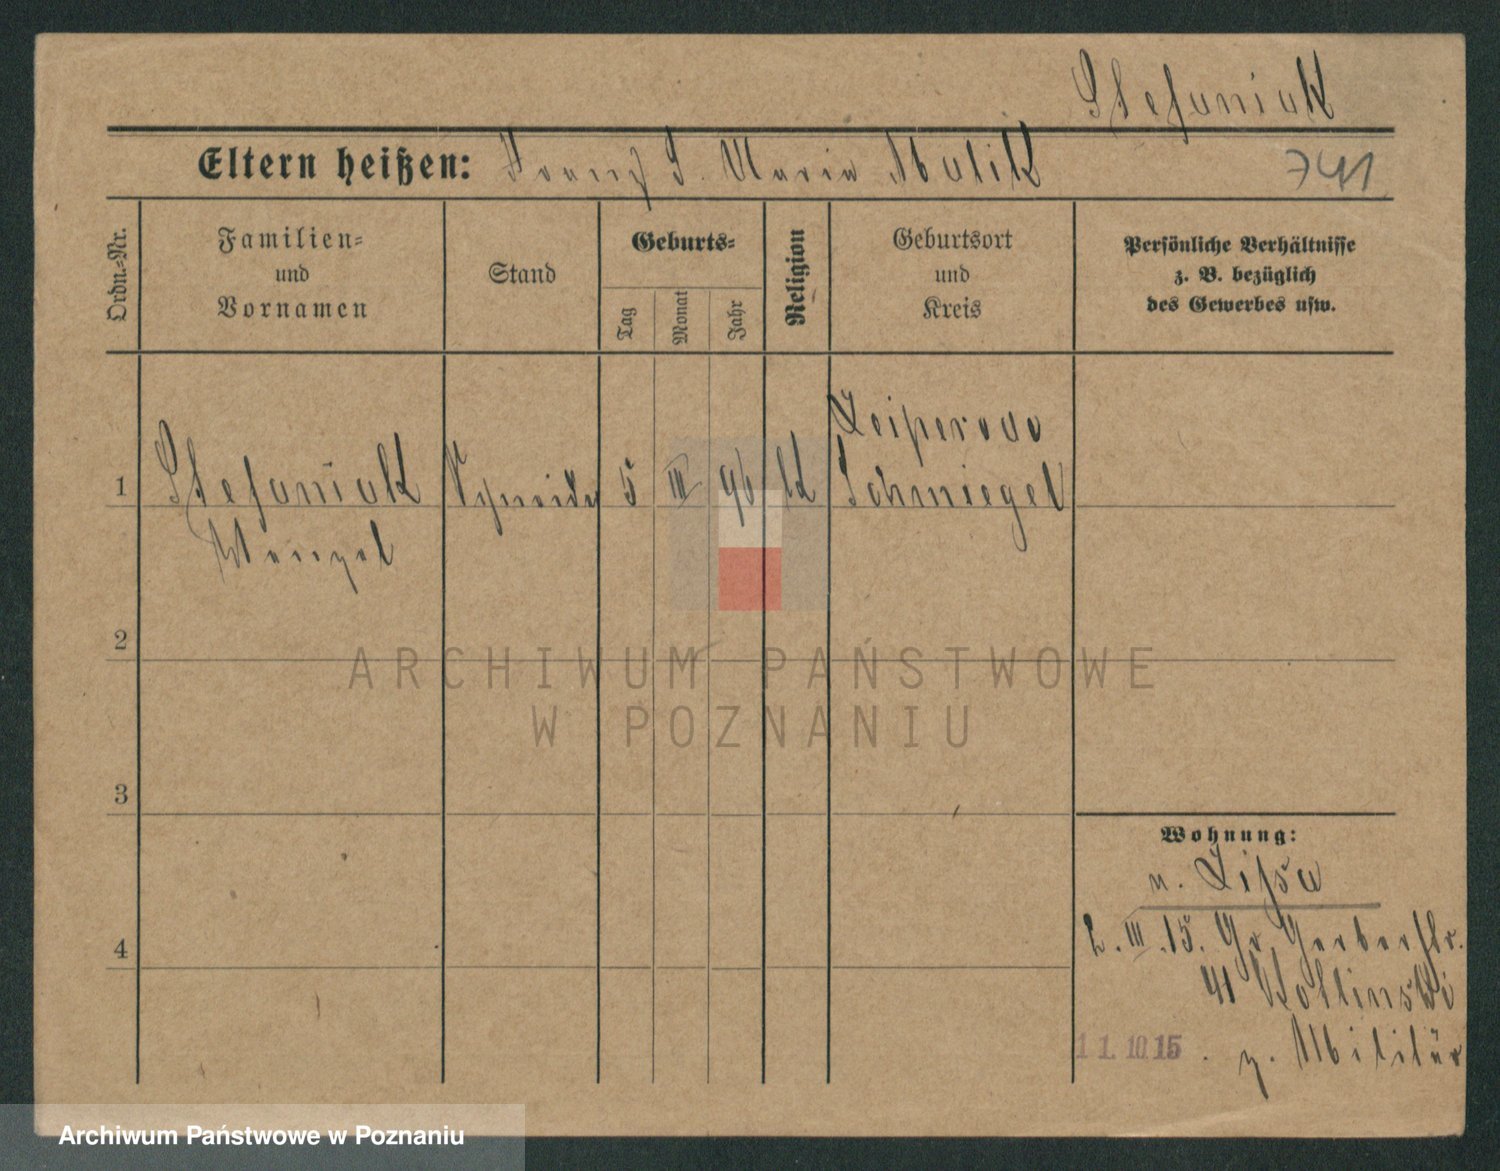 Stefaniak
Eltern heißen: Franz S. Maria Malik
741
Ordn.-Nr.
Familien-
und
Vornamen
Stand
Geburts-
Tag
Monat
Jahr
Religion
Geburtsort
und
Kreis
Persönliche Verhältnisse
z. B. bezüglich
des Gewerbes usw.
1
Stefaniak
Wenzel
Schneider
5
III
96
Leiperode
Schmiegel
2
3
4
Wohnung:
n. Lissa
2. III. 15. Gr. Gerberstr.
41 Kollinski
11.10.15. z. Militär
ARCHIWUM PAŃSTWOWE
W POZNANIU
Archiwum Państwowe w Poznaniu